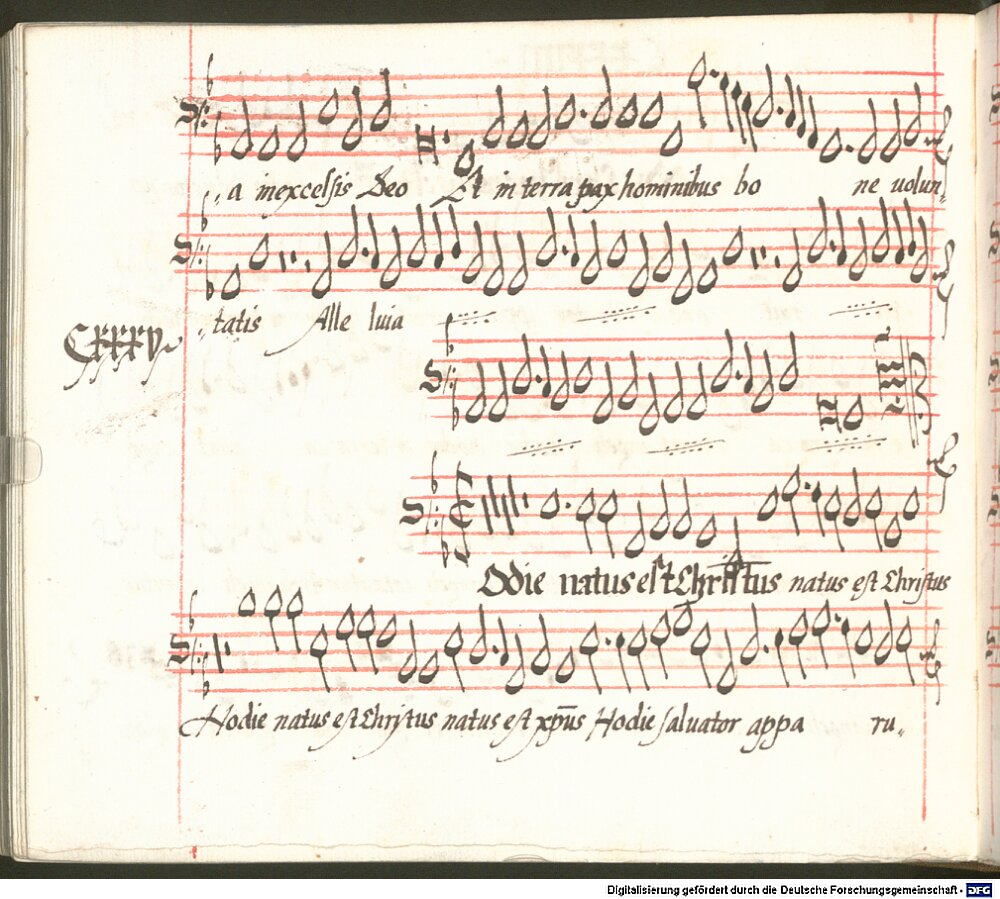 „a in excelſis Deo Et in terra pax hominibus bo ne uolun„
„tatis Alle luia
Cxxxv
Odie natus eſt Chriſtus natus eſt Chriſtus
Hodie natus eſt Chriſtus natus eſt xp̄us Hodie ſaluator appa ru„
Digitalisierung gefördert durch die Deutsche Forschungsgemeinschaft - DFG